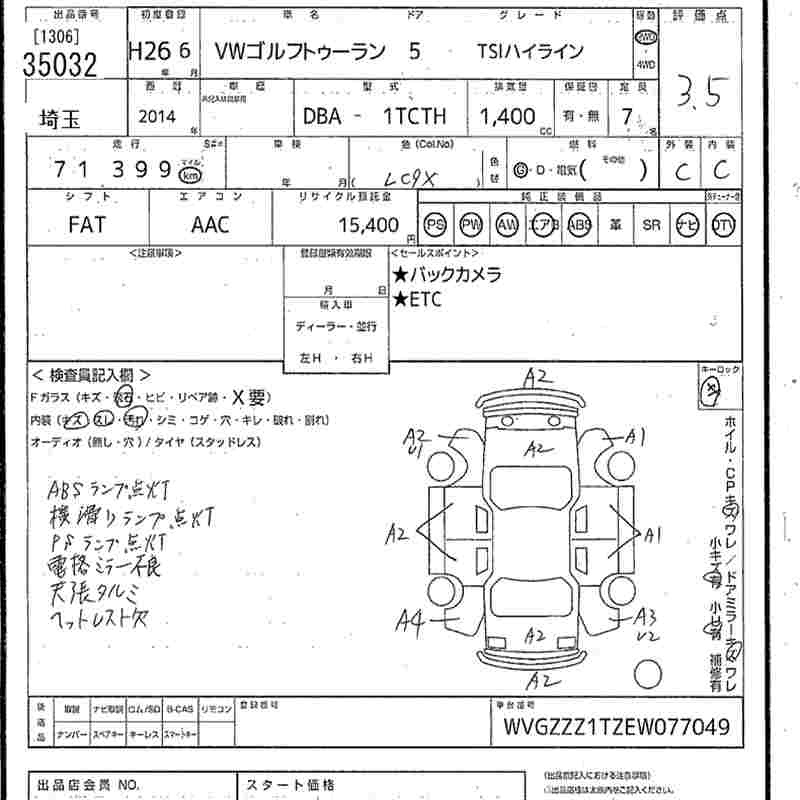 出品番号 初度登録 車名 ドア グレード 駆動 評価点
[1306]
35032 H26 6 VWゴルフトゥーラン 5 TSIハイライン 2WD 4WD 3.5
年 月
西暦 車歴 型式 排気量 保証書 定員
埼玉 2014 年 DBA - 1TCTH 1,400 cc 有・無 7 名
走行 車検 色(Col.No) 色替 燃料 外装 内装
71 399 マイル km 年 月 ( LC9X ) G・D・電気( その他 ) C C
シフト エアコン リサイクル預託金 純正装備品
FAT AAC 15,400 円 PS PW AW エアB ABS 革 SR ナビ DTV
<注意事項> 登録書類有効期限 <セールスポイント>
月 日 ★バックカメラ
輸入車 ★ETC
ディーラー・並行
左H ・ 右H
<検査員記入欄> キーロック
Fガラス(キズ・飛石・ヒビ・リペア跡・X要)
内装(キズ・スレ・汚れ・シミ・コゲ・穴・キレ・破れ・割れ)
オーディオ(無し・穴)/タイヤ(スタッドレス)
ABSランプ点灯
横滑りランプ点灯
PSランプ点灯
電格ミラー不良
天張タルミ
ヘットレスト欠
A2
A2 U1 A2 A1
A2 A1
A4 A2 A3 U2
A2
ホイル・CPキズワレ/ドアミラーキズワレ
小キズ有 小凹有 補修有
後送品 取説 ナビ取説 ロム/SD B-CAS リモコン 登録番号 車台番号
ナンバー スペアキー キーレス スマートキー WVGZZZ1TZEW077049
出品店会員 NO. スタート価格 (出品票記入における注意事項)
○出品店様は太枠内をご記入ください。